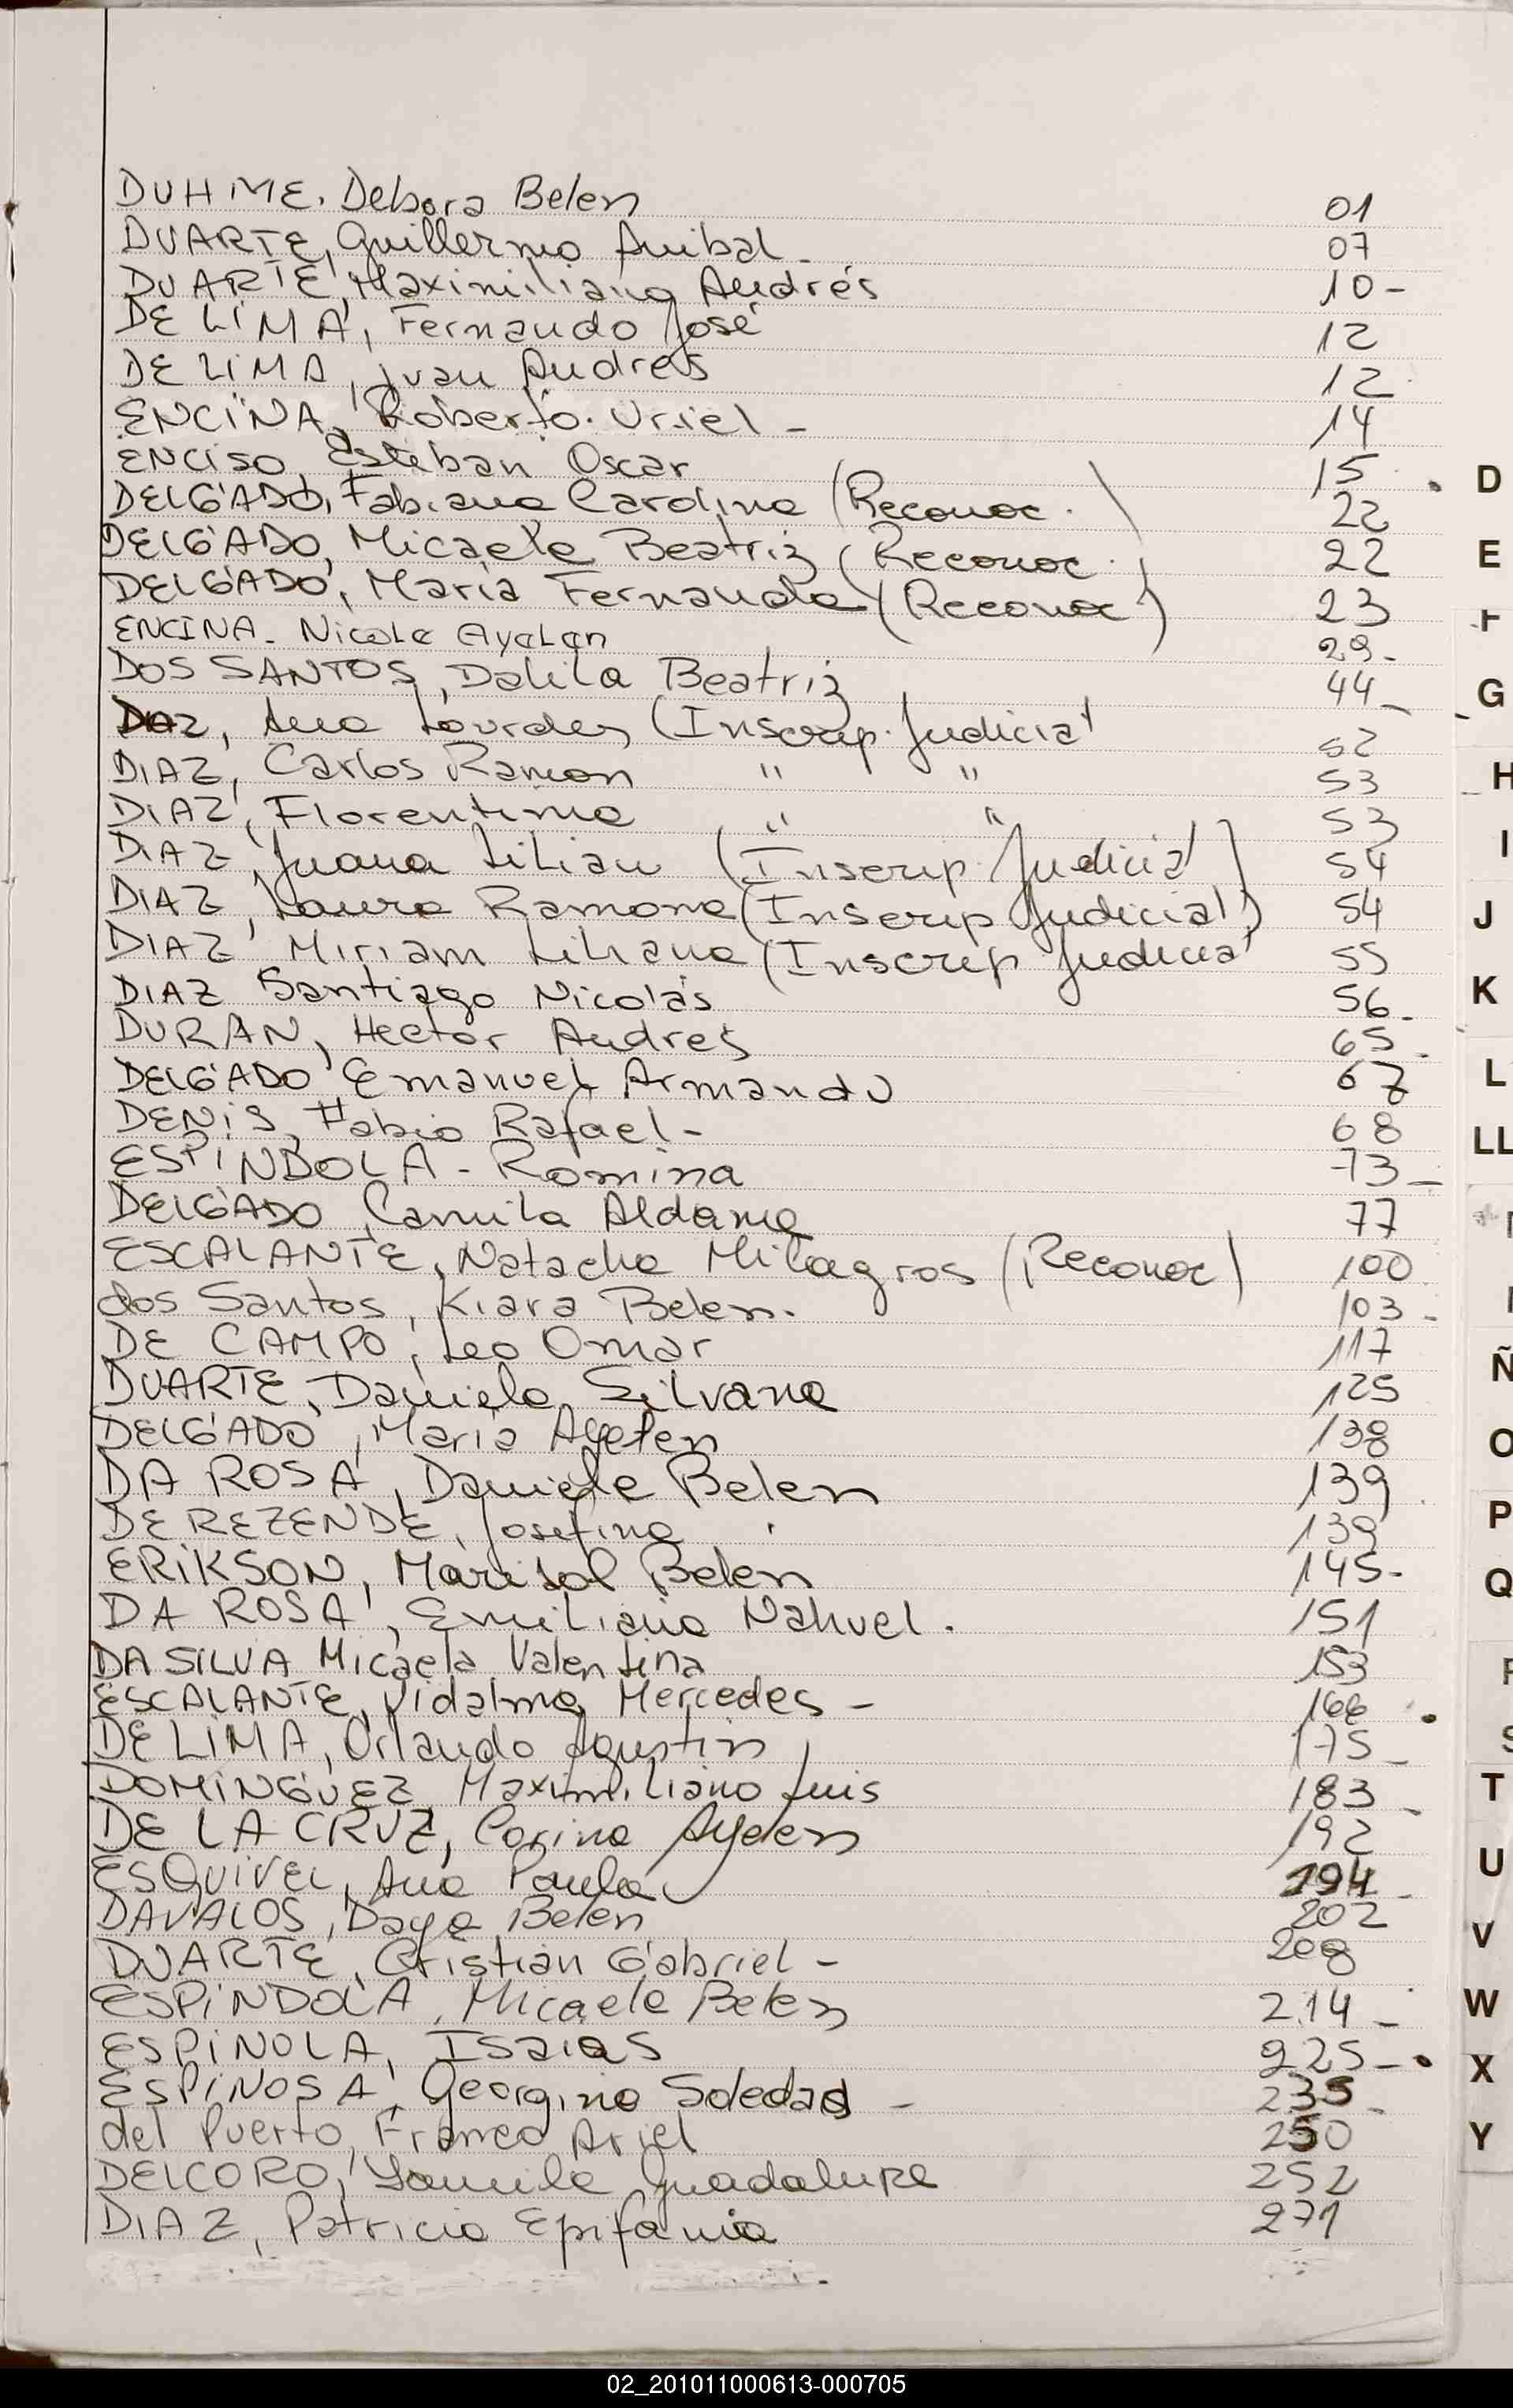 DUHME. Debora Belen 01
DUARTE, Guillermo Anibal - 07
DUARTE, Maximiliano Andrés 10 -
DE LIMA, Fernando José 12
DE LIMA, Juan Andres 12
ENCINA, Roberto Uriel - 14
ENCISO, Esteban Oscar 15
DELGADO, Fabiana Carolina (Reconoc.) 22
DELGADO, Micaela Beatriz (Reconoc.) 22
DELGADO, Maria Fernanda (Reconoc) 23
ENCINA - Nicole Ayalan 29 -
DOS SANTOS, Dalila Beatriz 44 -
DIAZ, Ana Lourdes (Inscrip. Judicial 52
DIAZ, Carlos Ramon " " 53
DIAZ, Florentina " " 53
DIAZ, Juana Lilian (Inscrip. Judicial) 54
DIAZ, Laura Ramona (Inscrip Judicial) 54
DIAZ Miriam Liliana (Inscrip Judicial 55
DIAZ Santiago Nicolás 56 -
DURAN, Hector Andres 65 -
DELGADO Emanuel Armando 67
DENIS, Fabio Rafael - 68
ESPINDOLA - Romina 73 -
DELGADO, Camila Aldana 77
ESCALANTE, Natacha Milagros (Reconoc) 100
dos Santos, Kiara Belen. 103 -
DE CAMPO, Leo Omar 117
DUARTE, Daniela Silvana 125
DELGADO, Maria Ayelen 138
DA ROSA, Daniela Belen 139
DE REZENDE, Josefina 139
ERIKSON, Marisol Belén 145 -
DA ROSA, Emiliano Nahuel. 151
DA SILVA Micaela Valentina 153
ESCALANTE, Vidalma Mercedes - 166
DE LIMA, Orlando Agustin 175 -
DOMINGUEZ, Maximiliano Luis 183 -
DE LA CRUZ, Corina Ayelen 192
ESQUIVEL, Ana Paula 194 -
DAVALOS, Daya Belen 202
DUARTE, Cristian Gabriel - 208
ESPINDOLA, Micaela Belen 214 -
ESPINOLA, Isaias 225 -
ESPINOSA, Georgina Soledad - 235 -
del Puerto, Franco Ariel 250
DELCORO, Yamila Guadalupe 252
DIAZ, Patricia Epifania 271
D
E
F
G
H
I
J
K
L
LL
Ñ
O
P
Q
T
U
V
W
X
Y
02_201011000613-000705